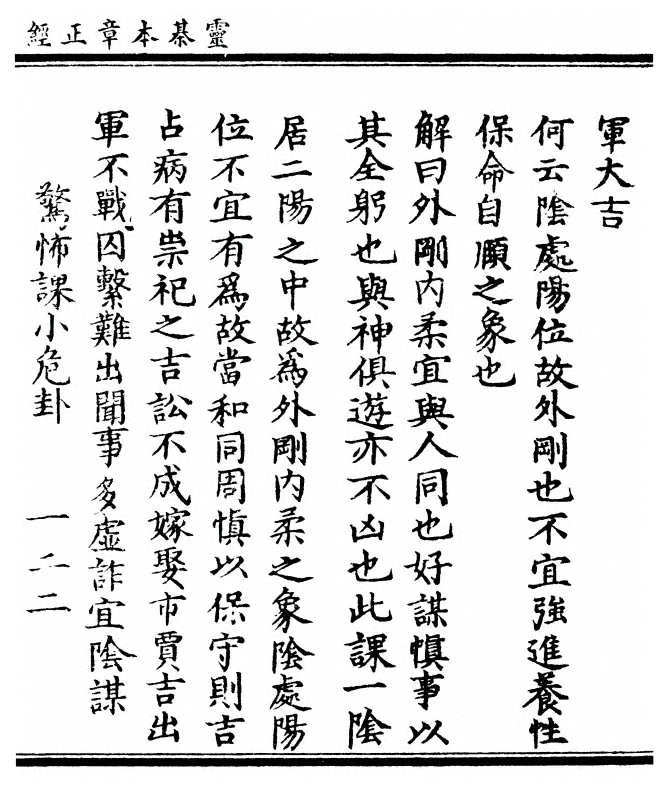 靈棊本章正經
軍大吉
何云陰處陽位故外剛也不宜強進養性
保命自願之象也
解曰外剛內柔宜與人同也好謀慎事以
其全躬也與神俱遊亦不凶也此課一陰
居二陽之中故為外剛內柔之象陰處陽
位不宜有為故當和同周慎以保守則吉
占病有祟祀之吉訟不成嫁娶市賈吉出
軍不戰囚繫難出聞事多虛詐宜陰謀
驚怖課小危卦 一二二